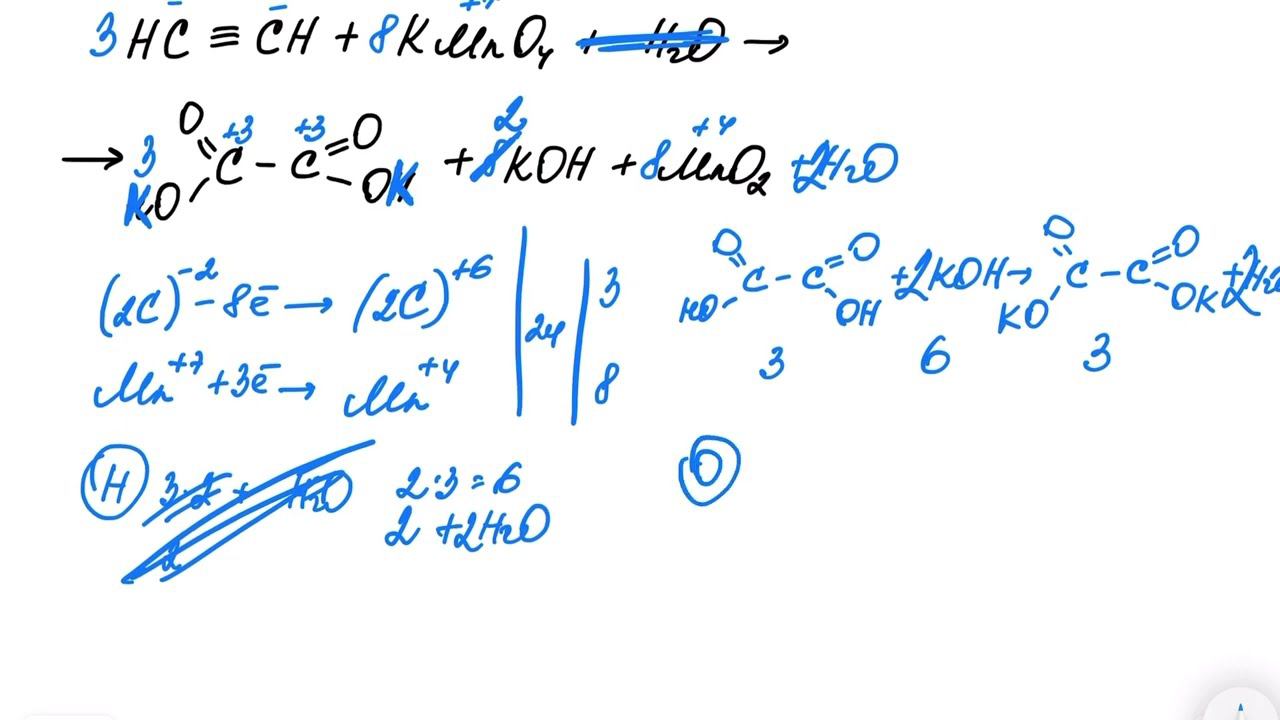 3 HC̄ ≡ C̄H + 8KMnO₄ + H₂O →
→ 3 KO O C +3 – C +3 O OK + 2 8 KOH + 8MnO₂ +4 + 2H₂O
(2C)⁻² – 8ē → (2C)⁺⁶ | 24 | 3
Mn⁺⁷ + 3ē → Mn⁺⁴ | 8
HO O C – C O OH + 2KOH → KO O C – C O OK + 2H₂O
3 6 3
H 3·2 + H₂O 2·3 = 6 O
2 2 + 2H₂O